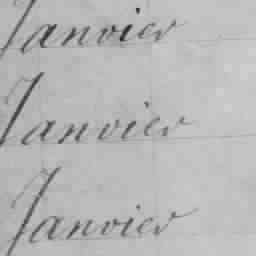 Janvier
Janvier
Janvier